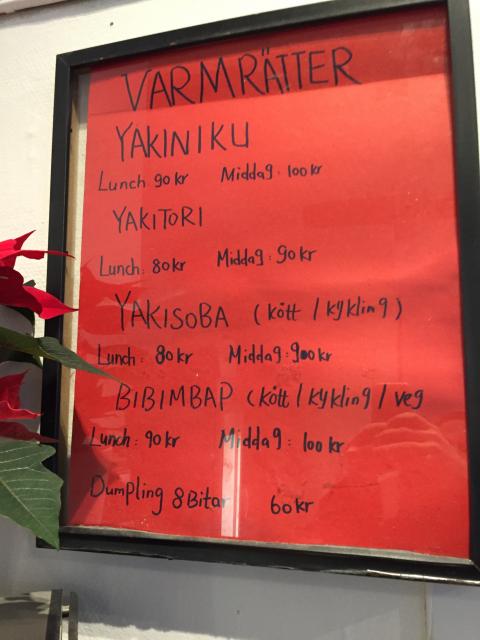 VARMRÄTTER
YAKINIKU
Lunch 90kr Middag: 100kr
YAKITORI
Lunch: 80kr Middag: 90kr
YAKISOBA (kött / kykling)
Lunch: 80kr Middag: 90kr
BIBIMBAP (kött / kykling / veg
Lunch: 90kr Middag: 100kr
Dumpling 8 Bitar 60kr